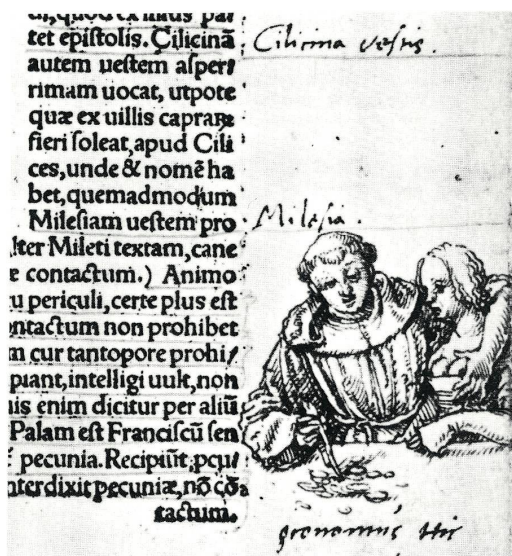 tet epiſtolis. Cilicinā
autem ueſtem aſper⸗
rimam uocat, utpote
quæ ex uillis caprarꝝ
fieri ſoleat, apud Cili
ces, unde & nomē ha
bet, quemadmodum
Mileſiam ueſtem pro
Mileti textam, cane
contactum.) Animo
u periculi, certe plus eſt
ontactum non prohibet
m cur tantopere prohi⸗
piant, intelligi uult, non
uis enim dicitur per aliū
Palam eſt Franciſcū ſen
pecunia. Recipiūt, pcu⸗
nterdixit pecuniæ, nō cō⸗
tactum.
Cilicina veſtis.
Mileſia.